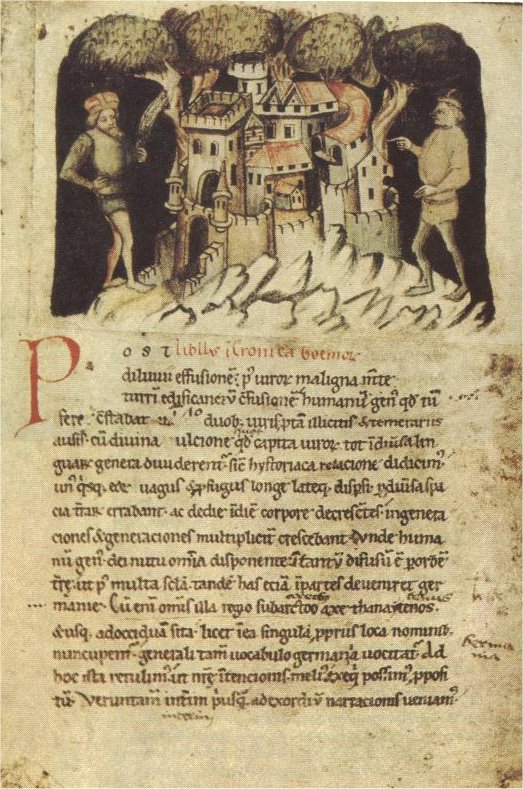 Post libllus i Cronica boemor
diluuii effusionē. p' uiror maligna mēte
turrī edificanciū cōfusionē humanū gen' qd tū
fere cōstabat duob; uiris, p tā illicitis & temerariis
ausis cū diuina ulcione qd capita uiror tot ī diuīsa lin
guar genera diuiderent sic hystoriaca relacione didicim'
un' qsq; eor uagus & pfugus longe lateq; dispsi p diuīsa spa
cia tr̄ar errabant. ac dedie īdiē corpore decrescētes ingenera
ciones & generaciones multiplicit crescebant. Vnde huma
nū gen' dei nutu omīa disponente. ī tantū difusū ē p orbē
tre. ut p' multa sclā. tandē has eciā īpartes deueniret ger
manie. Cū enī omīs illa regio subarctoo axe thanaytenos.
&usq; adocciduū sita. licet īea singula, pprius loca nominib;
nuncupent. generali tam̄ uocabulo germania uocitat. Ad
hoc ista retulim'. ut nrē ītencionis meli' exeq possim' pposi
tū. Veruntam̄ intim pusq; adexordiū narracionis ueniam'.